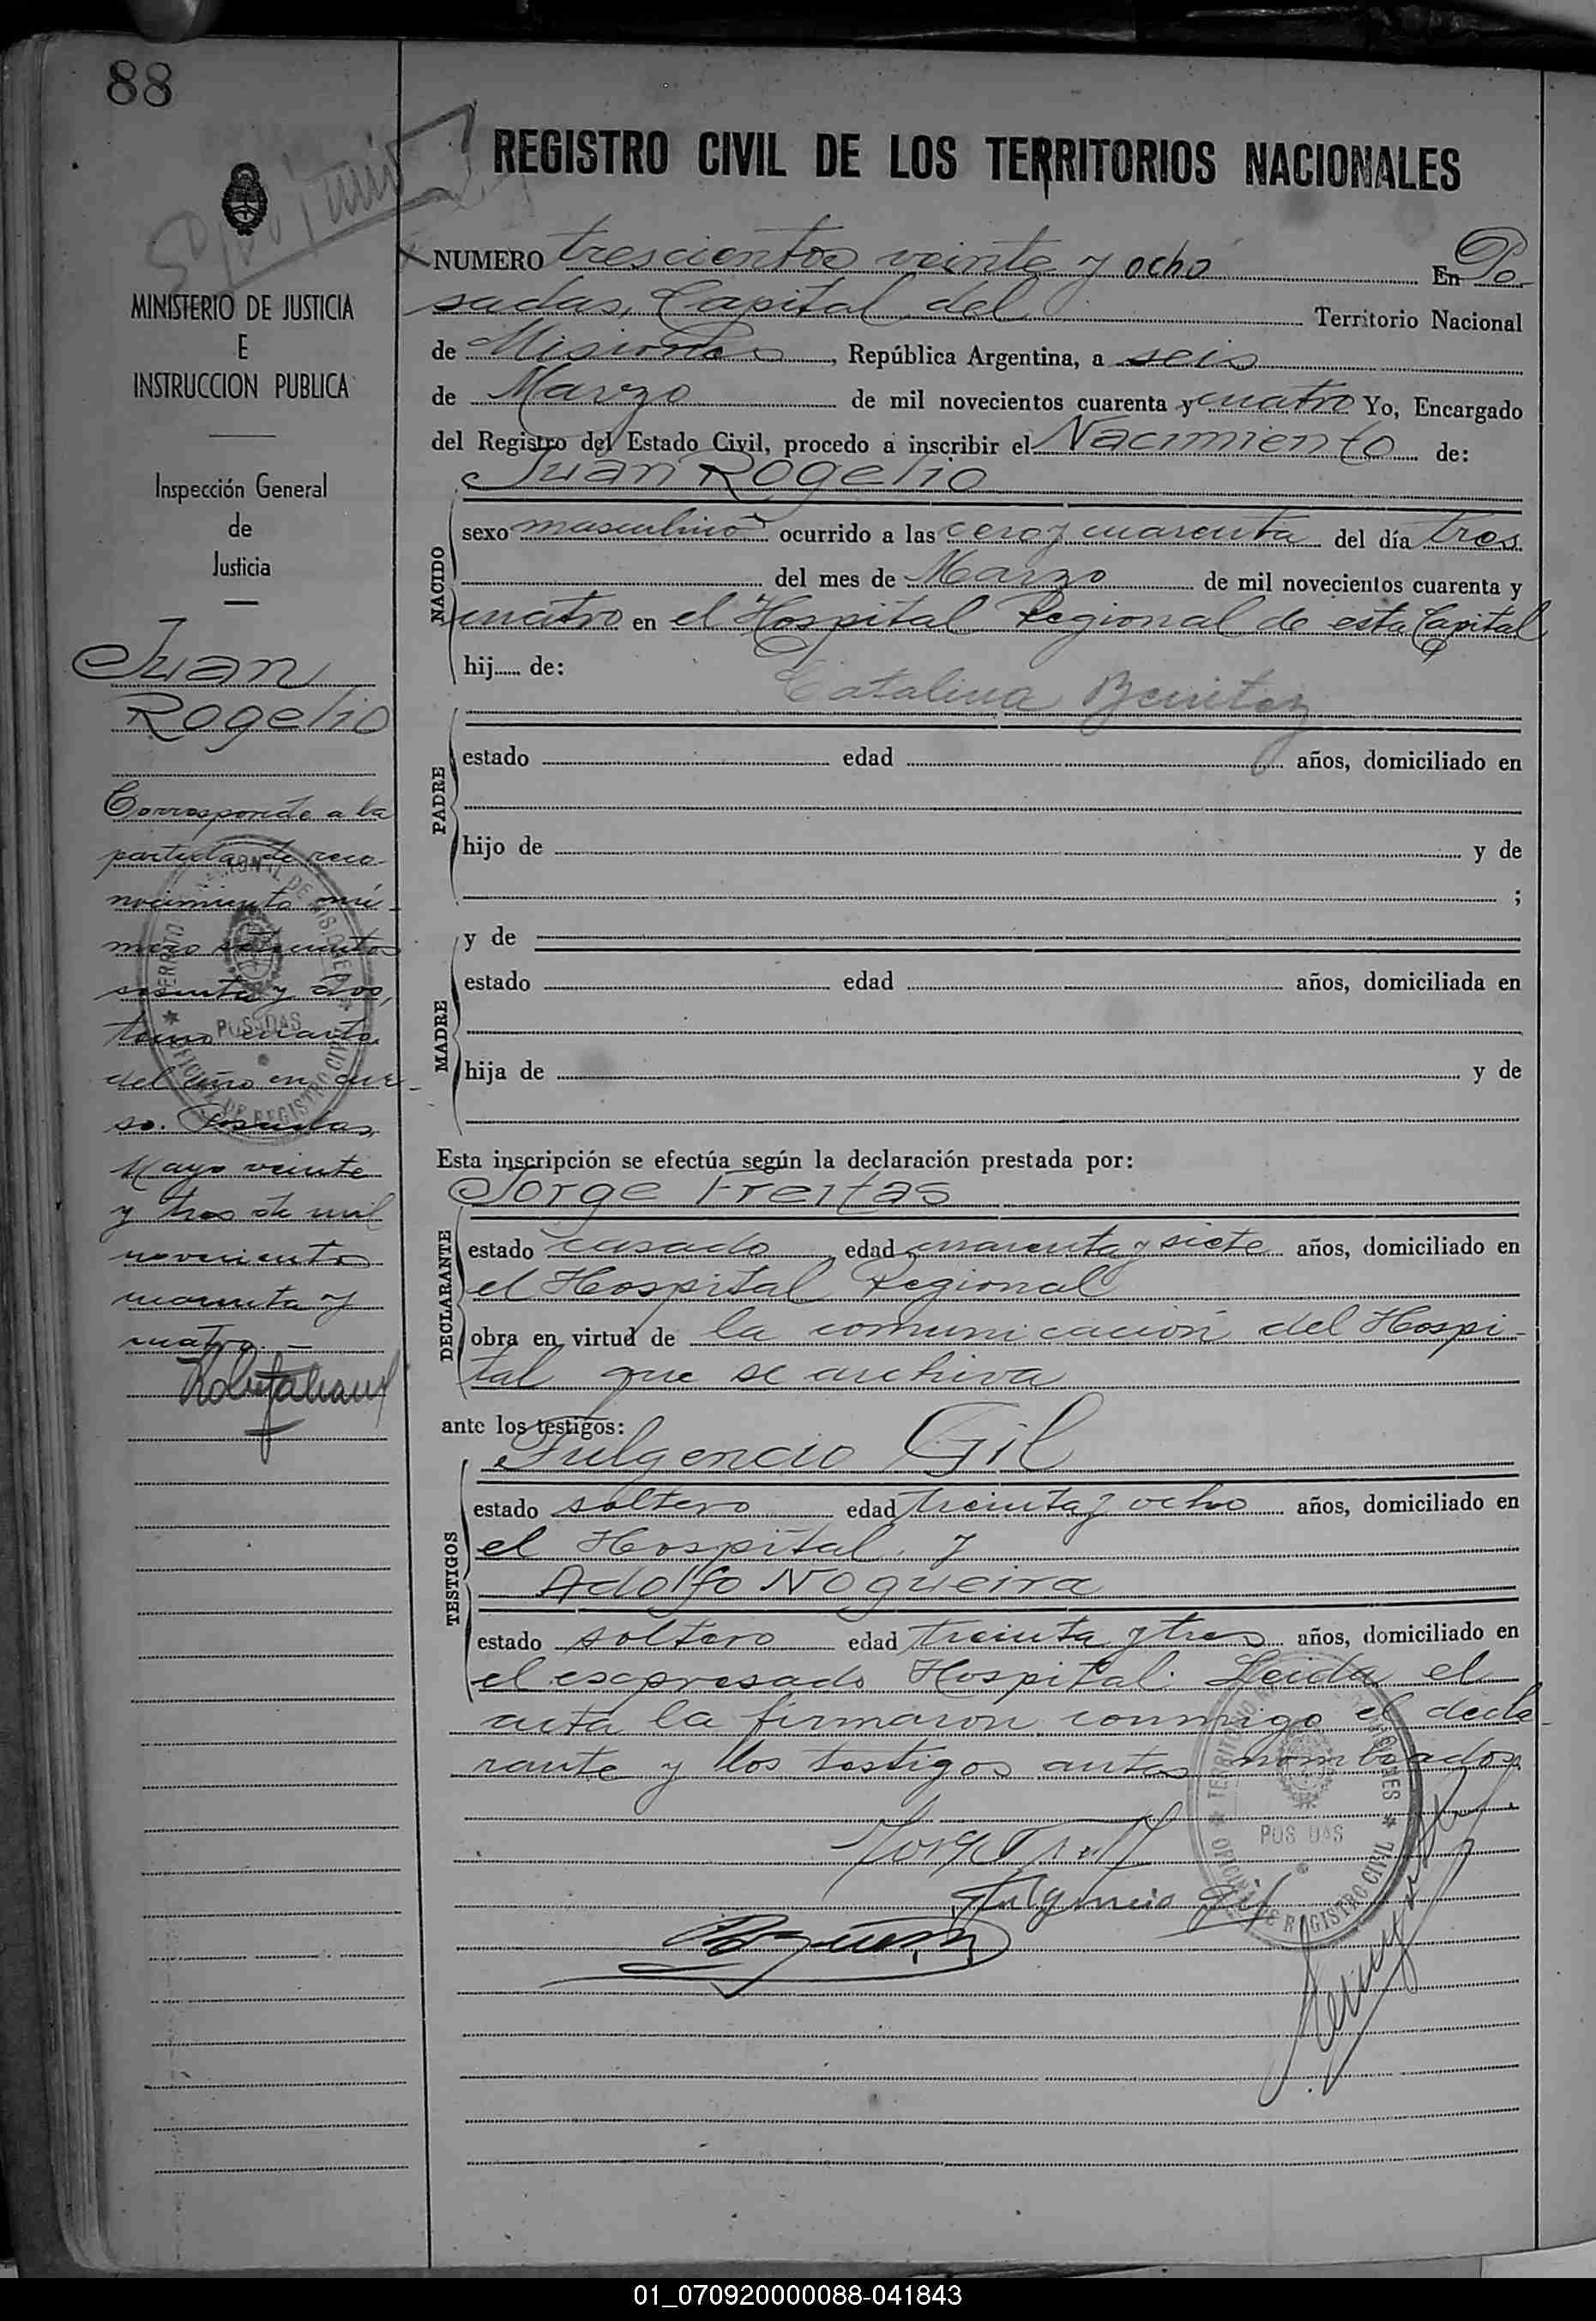 88
REGISTRO CIVIL DE LOS TERRITORIOS NACIONALES
MINISTERIO DE JUSTICIA
E
INSTRUCCION PUBLICA
Inspección General
de
Justicia
Juan
Rogelio
Corresponde a la
partida de reco-
nocimiento nú-
mero
sesenta y dos,
tomo cuarto
del año en cur-
so. Posadas,
Mayo veinte
y tres de mil
novecientos
cuarenta y
cuatro.—
NUMERO trescientos veinte y ocho En Po-
sadas, Capital del Territorio Nacional
de Misiones, República Argentina, a seis
de Marzo de mil novecientos cuarenta y cuatro Yo, Encargado
del Registro del Estado Civil, procedo a inscribir el Nacimiento de:
Juan Rogelio
NACIDO
sexo masculino ocurrido a las cero y cuarenta del día tres
del mes de Marzo de mil novecientos cuarenta y
cuatro en el Hospital Regional de esta Capital
hij de:
Catalina Benitez
PADRE
estado edad años, domiciliado en
hijo de y de
;
MADRE
y de
estado edad años, domiciliada en
hija de y de
Esta inscripción se efectúa según la declaración prestada por:
Jorge Freitas
DECLARANTE
estado casado, edad cuarenta y siete años, domiciliado en
el Hospital Regional
obra en virtud de la comunicación del Hospi-
tal que se archiva
ante los testigos:
Fulgencio Gil
TESTIGOS
estado soltero edad treinta y ocho años, domiciliado en
el Hospital. y
Adolfo Nogueira
estado soltero edad treinta y tres años, domiciliado en
el expresado Hospital. Leida el
acta la firmaron conmigo el decla-
rante y los testigos antes nombrados
POSADAS
Fulgencio Gil
01_070920000088-041843